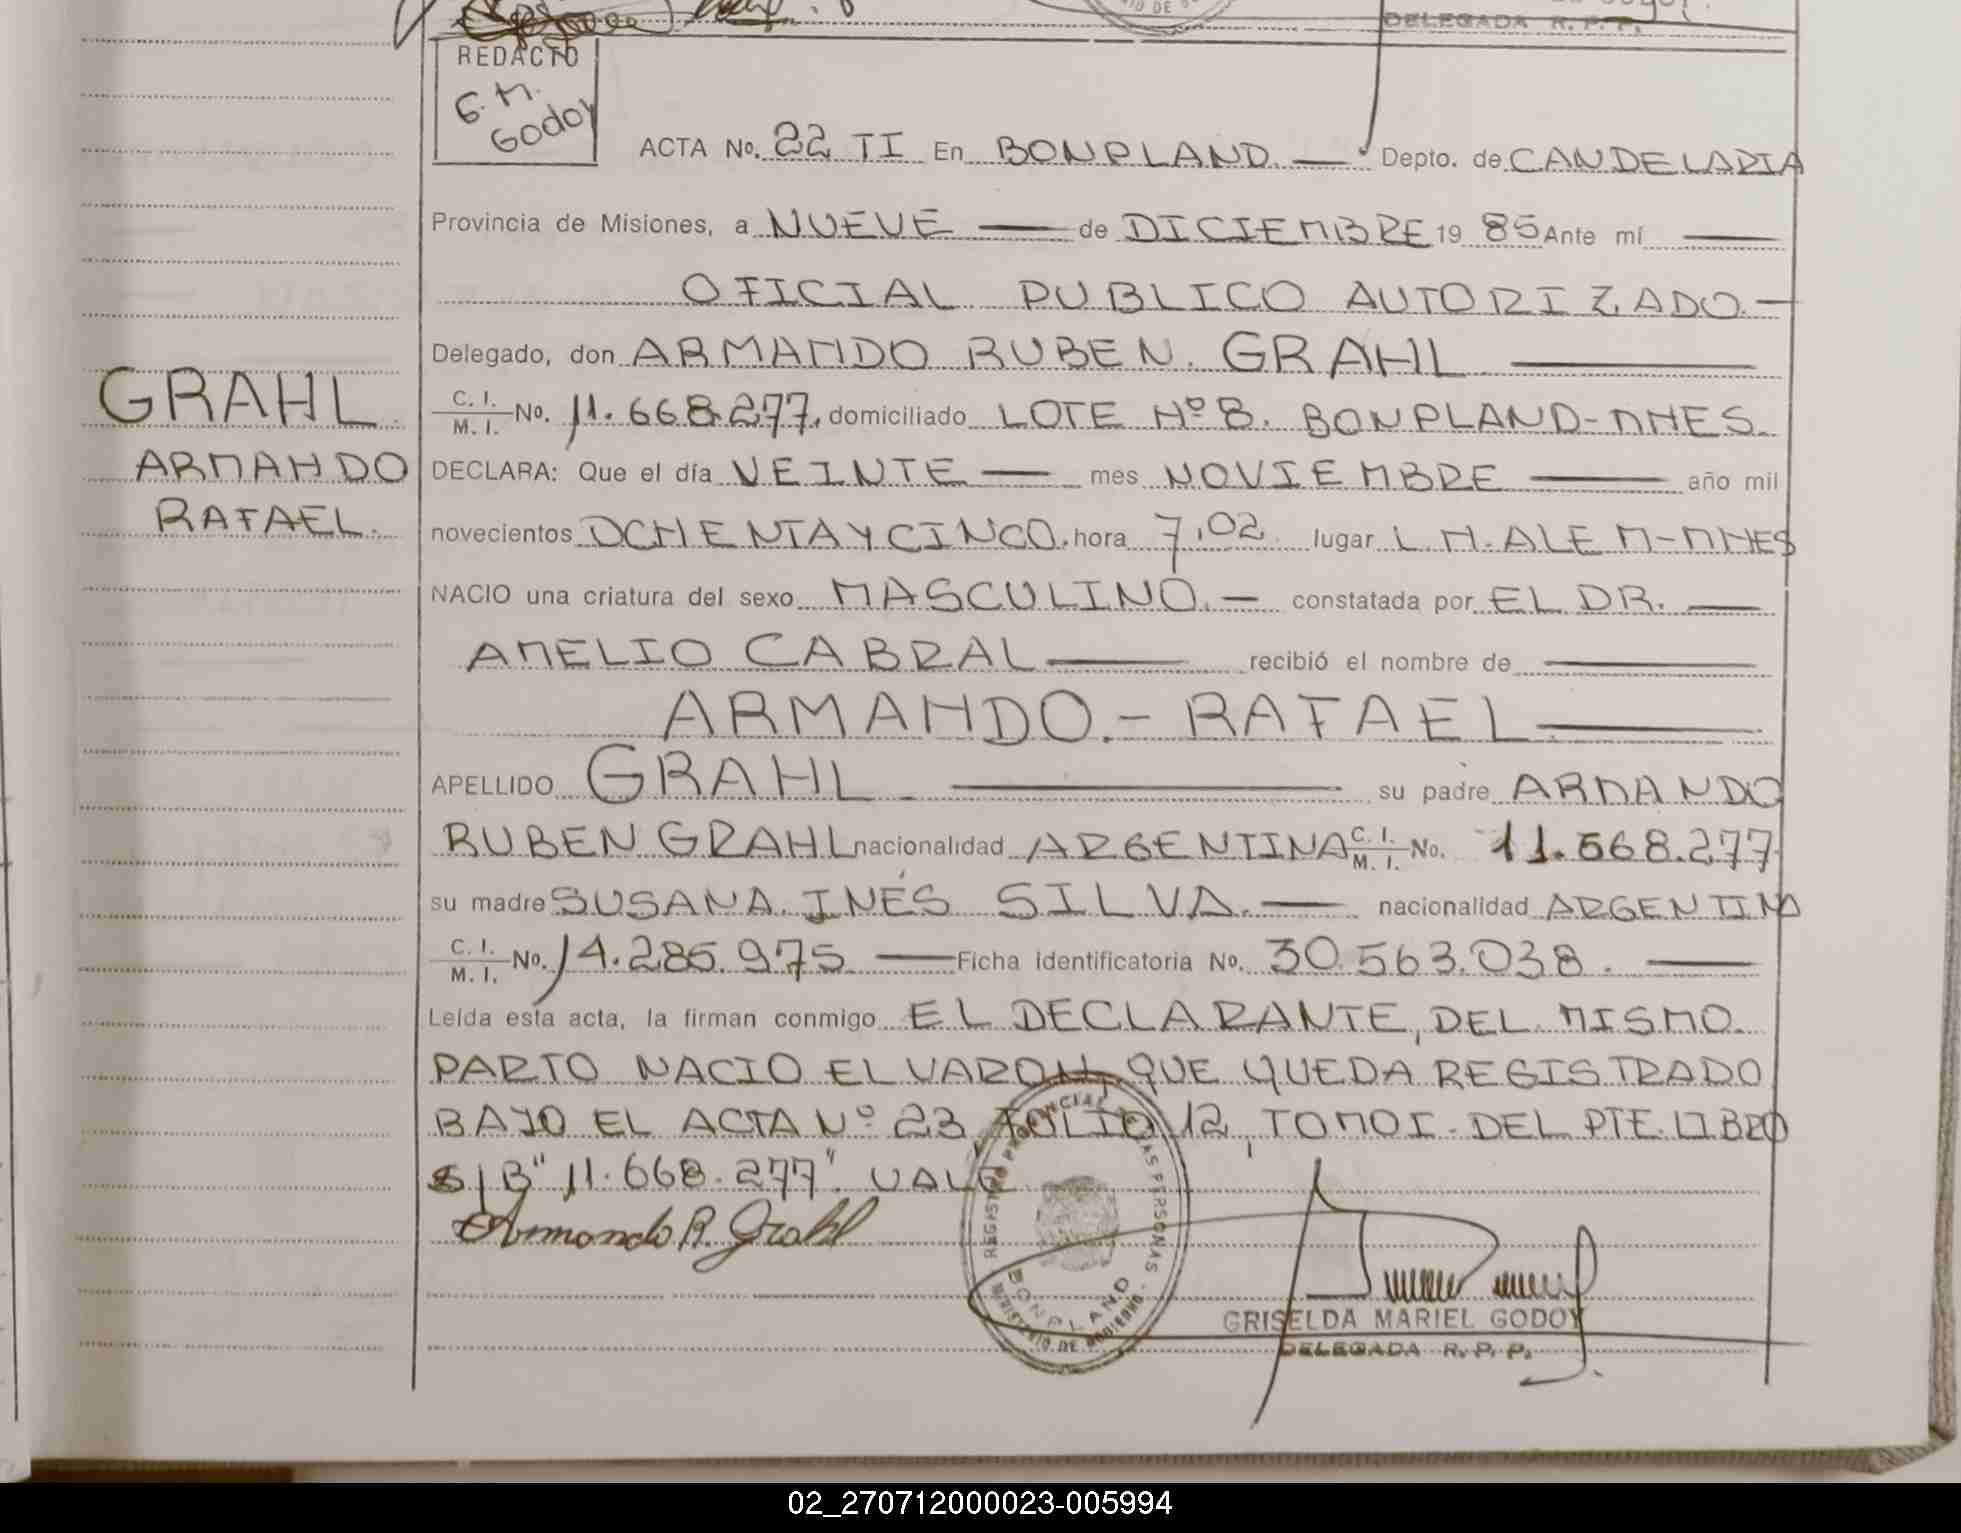 DELEGADA R. P. P.
REDACTO
G. M.
Godoy
ACTA No. 22 TI En BONPLAND. — Depto. de CANDELARIA
Provincia de Misiones, a NUEVE — de DICIEMBRE 19 85 Ante mí —
OFICIAL PUBLICO AUTORIZADO.—
Delegado, don ARMANDO RUBEN. GRAHL —
C. I. / M. I. No. 11.668.277, domiciliado LOTE Nº 8. BONPLAND-MNES.
DECLARA: Que el día VEINTE — mes NOVIEMBRE — año mil
novecientos OCHENTA Y CINCO. hora 7,02. lugar L. N. ALEM-MNES
NACIO una criatura del sexo MASCULINO. — constatada por EL DR. —
AMELIO CABRAL — recibió el nombre de —
ARMANDO.- RAFAEL —
APELLIDO GRAHL. — su padre ARMANDO
RUBEN GRAHL nacionalidad ARGENTINA C. I. / M. I. No. 11.668.277
su madre SUSANA. INÉS SILVA. — nacionalidad ARGENTINA
C. I. / M. I. No. 14.285.975 — Ficha identificatoria No. 30.563.038. —
Leída esta acta, la firman conmigo EL DECLARANTE, DEL MISMO
PARTO NACIO EL VARON, QUE QUEDA REGISTRADO
BAJO EL ACTA Nº 23 FOLIO 12, TOMO I. DEL PTE. LIBRO
S/B" 11.668.277". VALE
Armando R. Grahl
REGISTRO PROVINCIAL DE LAS PERSONAS
BONPLAND
MINISTERIO DE GOBIERNO
GRISELDA MARIEL GODOY
DELEGADA R. P. P.
GRAHL.
ARMANDO
RAFAEL.
02_270712000023-005994